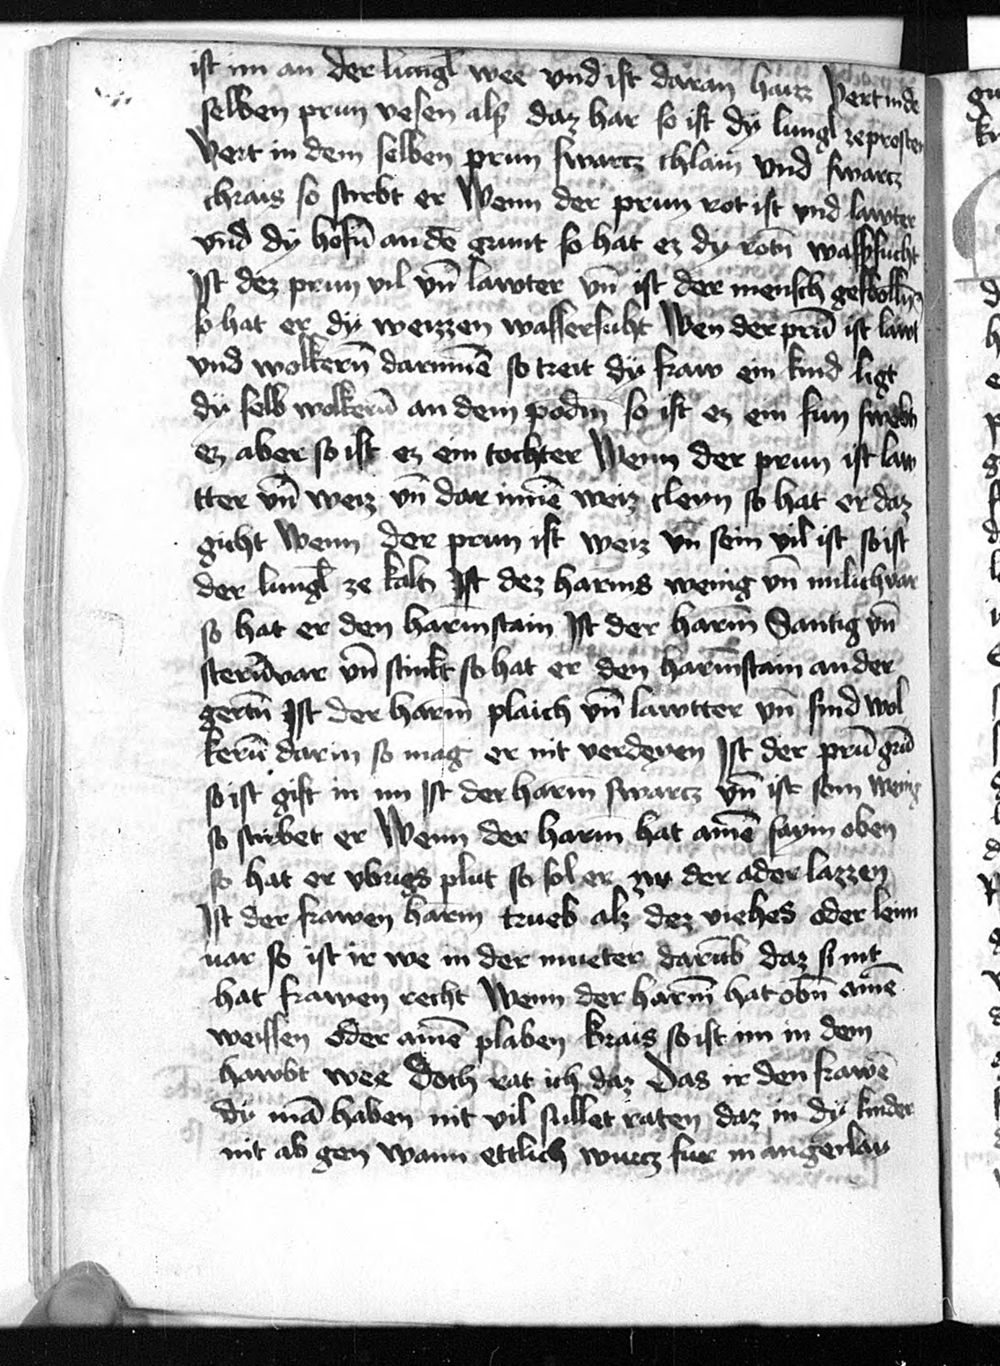 ist im an der lungl wee vnd ist daran haiz Vert in de
selben prun vesen als daz har so ist dy lungl zeprosten
Vert in dem selben prun swarcz chlain vnd swarcz
chrais so stirbt er Wenn der prun rot ist vnd lawter
vnd dy hofn̄ an dē grunt so hat ez dy rotn̄ wassersucht
Ist dez prun vil vn̄ lawter vn̄ ist der mensch geswollen
so hat er dy weizzen wassersuht Wen der prūn ist lawt
vnd wolkern̄ darinnē so treit dy fraw ein kind ligt
dy selb wolkern̄ an dem podm̄ so ist ez ein sun swebt
ez aber so ist ez ein tochter Wenn der prun ist law
tter vn̄ weiz vn̄ dar innē weiz cleyn so hat er daz
giht Wenn der prun ist weiz vn̄ sein vil ist so ist
der lungl ze kalt Ist dez harms wenig vn̄ milichvar
so hat er den harmstain Ist der harm̄ Santig vn̄
stern̄var vn̄ stinkt so hat er den harmstain an der
gertn̄ Ist der harm̄ plaich vn̄ lawtter vn̄ sind wol
kern̄ darin so mag er nit verdeven Ist der prūn grūn
so ist gift in im Ist der harm swarcz vn̄ ist sein wenig
so stirbet er Wenn der harm hat ainē faym oben
so hat er vbrigs plut so sol er zw der ader lazzen
Ist der frawen harm trueb alz dez viehes oder lem
var so ist ir we in der mueter darūb daz si nit
hat frawen recht Wenn der harm̄ hat obn̄ ainē
weissen oder ainē plaben krais so ist im in dem
hawbt wee Doch rat ich daz Das ir den frawē
dy mā haben nit vil sullet raten daz in dy kinder
nit ab gen wann ettlich wurcz fuer in angerlay